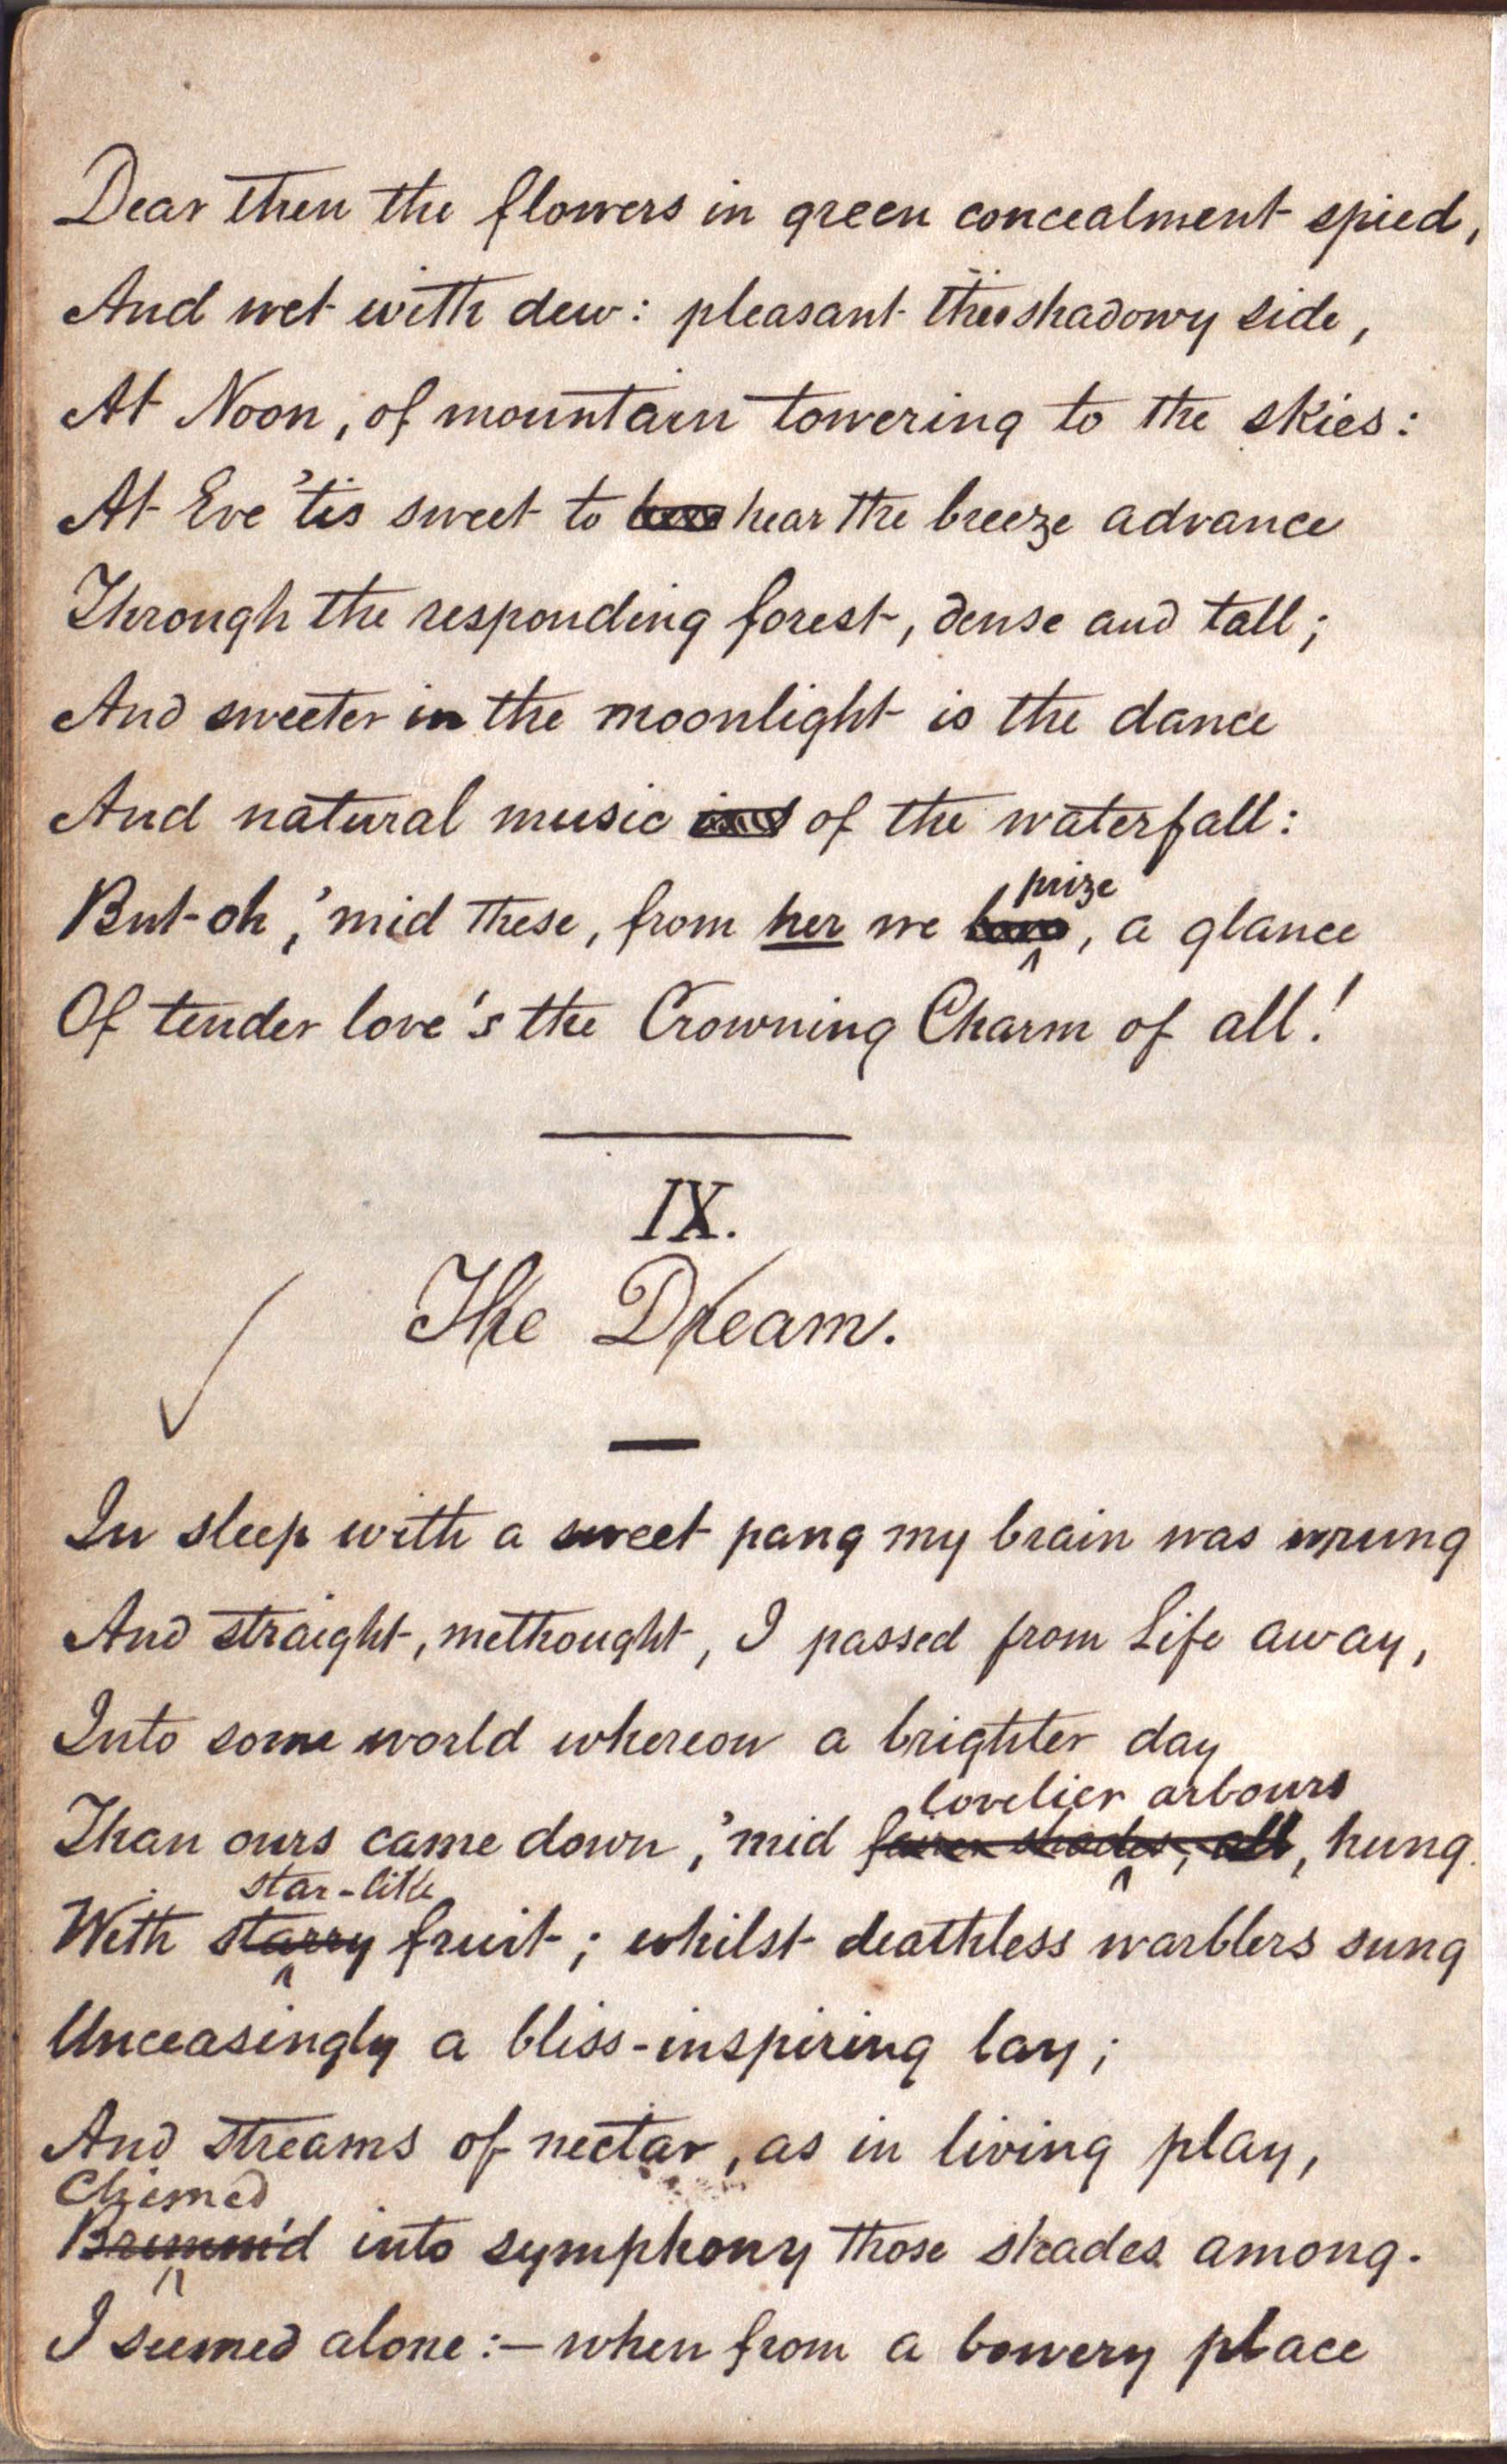 Dear then the flowers in green concealment spied,
And wet with dew: pleasant the shadowy side,
At Noon, of mountain towering to the skies:
At Eve 'tis sweet to hear the breeze advance
Through the responding forest, dense and tall;
And sweeter in the moonlight is the dance
And natural music of the waterfall:
prize
But oh, 'mid these, from her we , a glance
Of tender love's the Crowning Charm of all!
IX.
The Dream.
In sleep with a sweet pang my brain was wrung
And straight, methought, I passed from Life away,
Into some world whereon a brighter day
lovelier arbours
Than ours came down, 'mid fairer shades, all, hung
star-like
With starry fruit; whilst deathless warblers sung
Unceasingly a bliss-inspiring lay;
And streams of nectar, as in living play,
Chimed
Brimm'd into symphony those shades among.
I seemed alone:— when from a bowery place